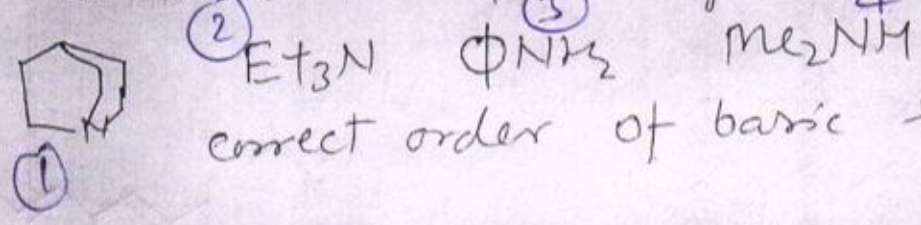 ② Et₃N ③ ΦNH₂ Me₂NH
N
① correct order of basic -